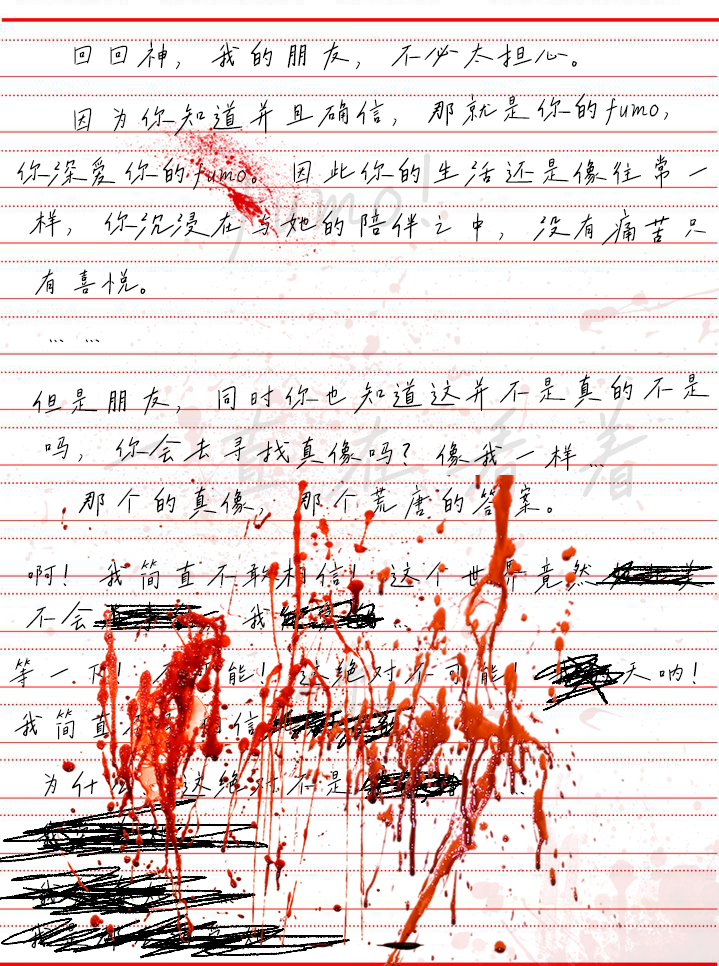 回回神，我的朋友，不必太担心。
因为你知道并且确信，那就是你的fumo，
你深爱你的fumo。因此你的生活还是像往常一
样，你沉浸在与她的陪伴之中，没有痛苦只
有喜悦。
… …
但是朋友，同时你也知道这并不是真的不是
吗，你会去寻找真像吗？像我一样…
那个的真像，那个荒唐的答案。
啊！我简直不敢相信！这个世界竟然
不会 我
等一下！不可能！这绝对不可能！ 天呐！
我简直 相信
为什 这绝对不是
fumo!
一直在看着